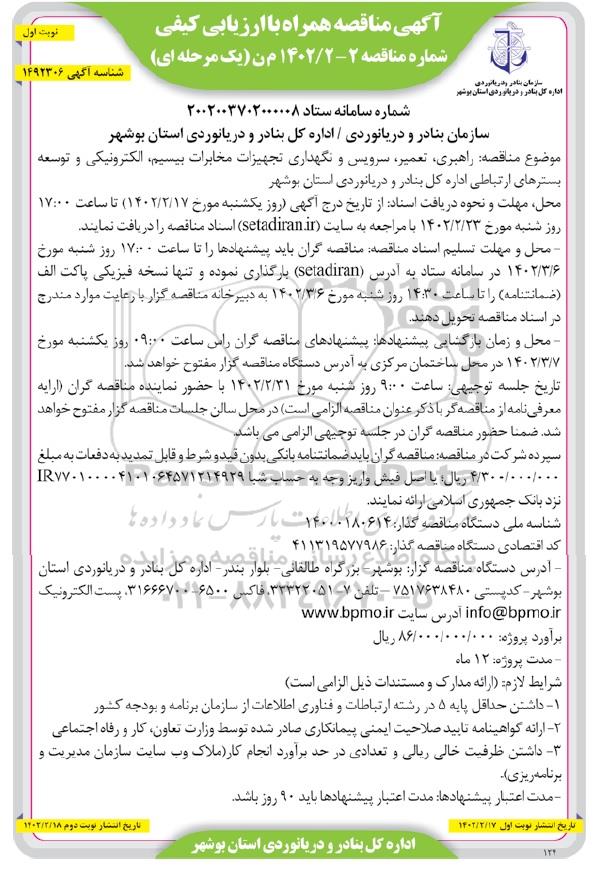 آگهی مناقصه همراه با ارزیابی کیفی
شماره مناقصه ۲-۱۴۰۲/۲ م ن (یک مرحله ای)
نوبت اول
شناسه آگهی ۱۴۹۲۳۰۶
سازمان بنادر و دریانوردی
اداره کل بنادر و دریانوردی استان بوشهر
شماره سامانه ستاد ۲۰۰۲۰۰۳۷۰۲۰۰۰۰۰۸
سازمان بنادر و دریانوردی / اداره کل بنادر و دریانوردی استان بوشهر
موضوع مناقصه: راهبری، تعمیر، سرویس و نگهداری تجهیزات مخابرات بیسیم، الکترونیکی و توسعه
بسترهای ارتباطی اداره کل بنادر و دریانوردی استان بوشهر
محل، مهلت و نحوه دریافت اسناد: از تاریخ درج آگهی (روز یکشنبه مورخ ۱۴۰۲/۲/۱۷) تا ساعت ۱۷:۰۰
روز شنبه مورخ ۱۴۰۲/۲/۲۳ با مراجعه به سایت (setadiran.ir) اسناد مناقصه را دریافت نمایند.
- محل و مهلت تسلیم اسناد مناقصه: مناقصه گران باید پیشنهادها را تا ساعت ۱۷:۰۰ روز شنبه مورخ
۱۴۰۲/۳/۶ در سامانه ستاد به آدرس (setadiran) بارگذاری نموده و تنها نسخه فیزیکی پاکت الف
(ضمانتنامه) را تا ساعت ۱۴:۳۰ روز شنبه مورخ ۱۴۰۲/۳/۶ به دبیرخانه مناقصه گزار با رعایت موارد مندرج
در اسناد مناقصه تحویل دهند.
- محل و زمان بازگشایی پیشنهادها: پیشنهادهای مناقصه گران راس ساعت ۰۹:۰۰ روز یکشنبه مورخ
۱۴۰۲/۳/۷ در محل ساختمان مرکزی به آدرس دستگاه مناقصه گزار مفتوح خواهد شد.
تاریخ جلسه توجیهی: ساعت ۹:۰۰ روز شنبه مورخ ۱۴۰۲/۲/۳۱ با حضور نماینده مناقصه گران (ارایه
معرفی‌نامه از مناقصه‌گر با ذکر عنوان مناقصه الزامی است) در محل سالن جلسات مناقصه گزار مفتوح خواهد
شد. ضمنا حضور مناقصه گران در جلسه توجیهی الزامی می باشد.
سپرده شرکت در مناقصه: مناقصه گران باید ضمانتنامه بانکی بدون قید و شرط و قابل تمدید به دفعات به مبلغ
۴/۳۰۰/۰۰۰/۰۰۰ ریال؛ یا اصل فیش واریز وجه به حساب شبا IR۷۷۰۱۰۰۰۰۴۱۰۱۰۶۴۵۷۱۲۱۴۹۲۹
نزد بانک جمهوری اسلامی ارائه نمایند.
شناسه ملی دستگاه مناقصه گذار: ۱۴۰۰۰۱۸۰۶۱۴
کد اقتصادی دستگاه مناقصه گذار: ۴۱۱۳۱۹۵۷۷۹۸۶
- آدرس دستگاه مناقصه گزار: بوشهر- بزرگراه طالقانی- بلوار بندر- اداره کل بنادر و دریانوردی استان
بوشهر- کدپستی ۷۵۱۷۶۳۸۴۸۰ – تلفن ۷-۳۳۳۲۲۰۵۱، فاکس ۶۵۰۰-۳۱۶۶۶۷۰۰، پست الکترونیک
info@bpmo.ir آدرس سایت www.bpmo.ir
برآورد پروژه: ۸۶/۰۰۰/۰۰۰/۰۰۰ ریال
- مدت پروژه: ۱۲ ماه
شرایط لازم: (ارائه مدارک و مستندات ذیل الزامی است)
۱- داشتن حداقل پایه ۵ در رشته ارتباطات و فناوری اطلاعات از سازمان برنامه و بودجه کشور
۲- ارائه گواهینامه تایید صلاحیت ایمنی پیمانکاری صادر شده توسط وزارت تعاون، کار و رفاه اجتماعی
۳- داشتن ظرفیت خالی ریالی و تعدادی در حد برآورد انجام کار(ملاک وب سایت سازمان مدیریت و
برنامه‌ریزی).
-مدت اعتبار پیشنهادها: مدت اعتبار پیشنهادها باید ۹۰ روز باشد.
تاریخ انتشار نوبت اول ۱۴۰۲/۲/۱۷
تاریخ انتشار نوبت دوم ۱۴۰۲/۲/۱۸
اداره کل بنادر و دریانوردی استان بوشهر
۱۲۴
ParsNamadData
پایگاه اطلاع رسانی مناقصه و مزایده
۰۲۱-۸۸۳۴۹۶۷۰-۵